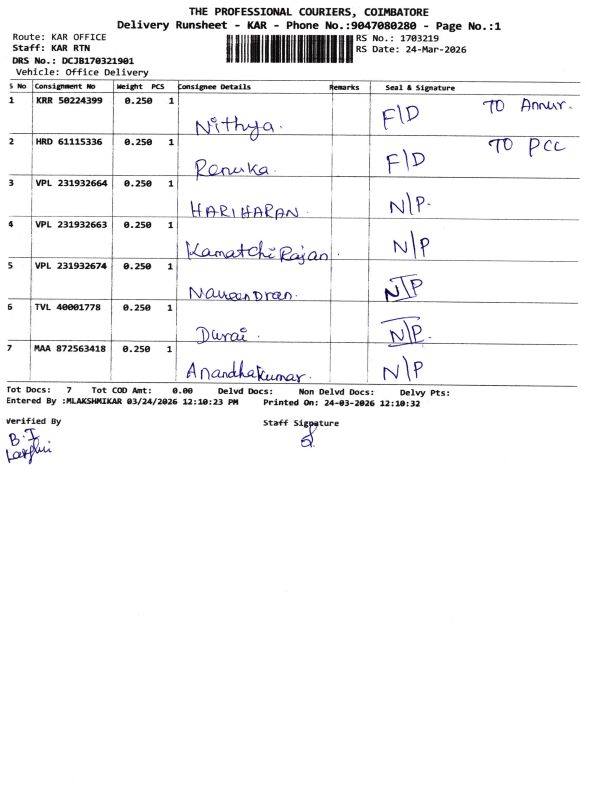 THE PROFESSIONAL COURIERS, COIMBATORE
Delivery Runsheet - KAR - Phone No.:9047080280 - Page No.:1
Route: KAR OFFICE RS No.: 1703219
Staff: KAR RTN RS Date: 24-Mar-2026
DRS No.: DCJB170321901
Vehicle: Office Delivery
S No Consignment No Weight PCS Consignee Details Remarks Seal & Signature
1 KRR 50224399 0.250 1 Nithya. F/D TO Annur.
2 HRD 61115336 0.250 1 Renuka. F/D TO PCC
3 VPL 231932664 0.250 1 HARIHARAN. N/P.
4 VPL 231932663 0.250 1 Kamatchi Rajan N/P
5 VPL 231932674 0.250 1 Naveendran. N/P
6 TVL 40001778 0.250 1 Durai. N/P.
7 MAA 872563418 0.250 1 Anandhakumar. N/P
Tot Docs: 7 Tot COD Amt: 0.00 Delvd Docs: Non Delvd Docs: Delvy Pts:
Entered By :MLAKSHMIKAR 03/24/2026 12:10:23 PM Printed On: 24-03-2026 12:10:32
Verified By Staff Signature